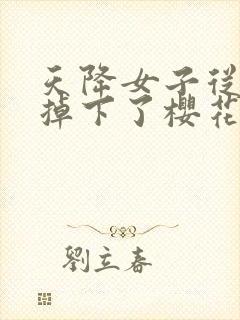 天降女子從
掉下了櫻花
劉立春